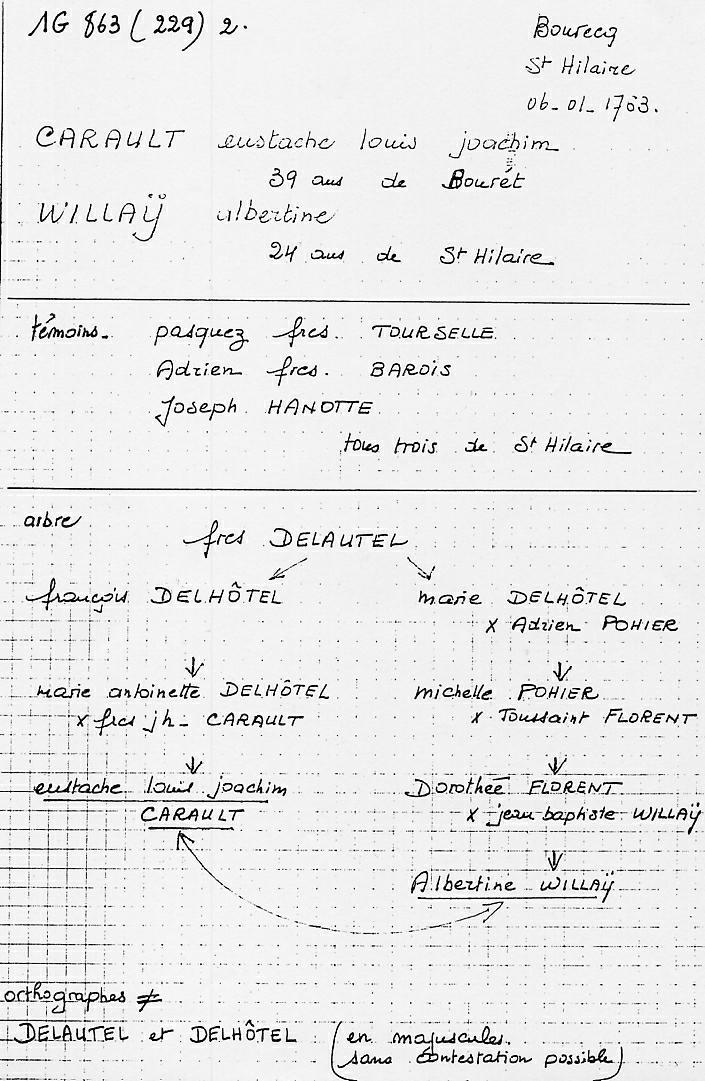 1G 863 (229) 2.
Bourecq
St Hilaire
06-01-1763.
CARAULT eustache louis joachim
39 ans de Bourét
WILLAŸ albertine
24 ans de St Hilaire
témoins. pasquez fres. TOURSELLE
Adrien fres. BAROIS
Joseph HANOTTE
tous trois de St Hilaire
arbre
fres DELAUTEL
françois DELHÔTEL
marie DELHÔTEL
x Adrien POHIER
marie antoinette DELHÔTEL
x fres jh- CARAULT
michelle POHIER
x Toussaint FLORENT
eustache louis joachim
CARAULT
Dorothée FLORENT
x jean baptiste WILLAŸ
Albertine WILLAŸ
orthographes ≠
DELAUTEL et DELHÔTEL (en majuscules.
sans contestation possible)